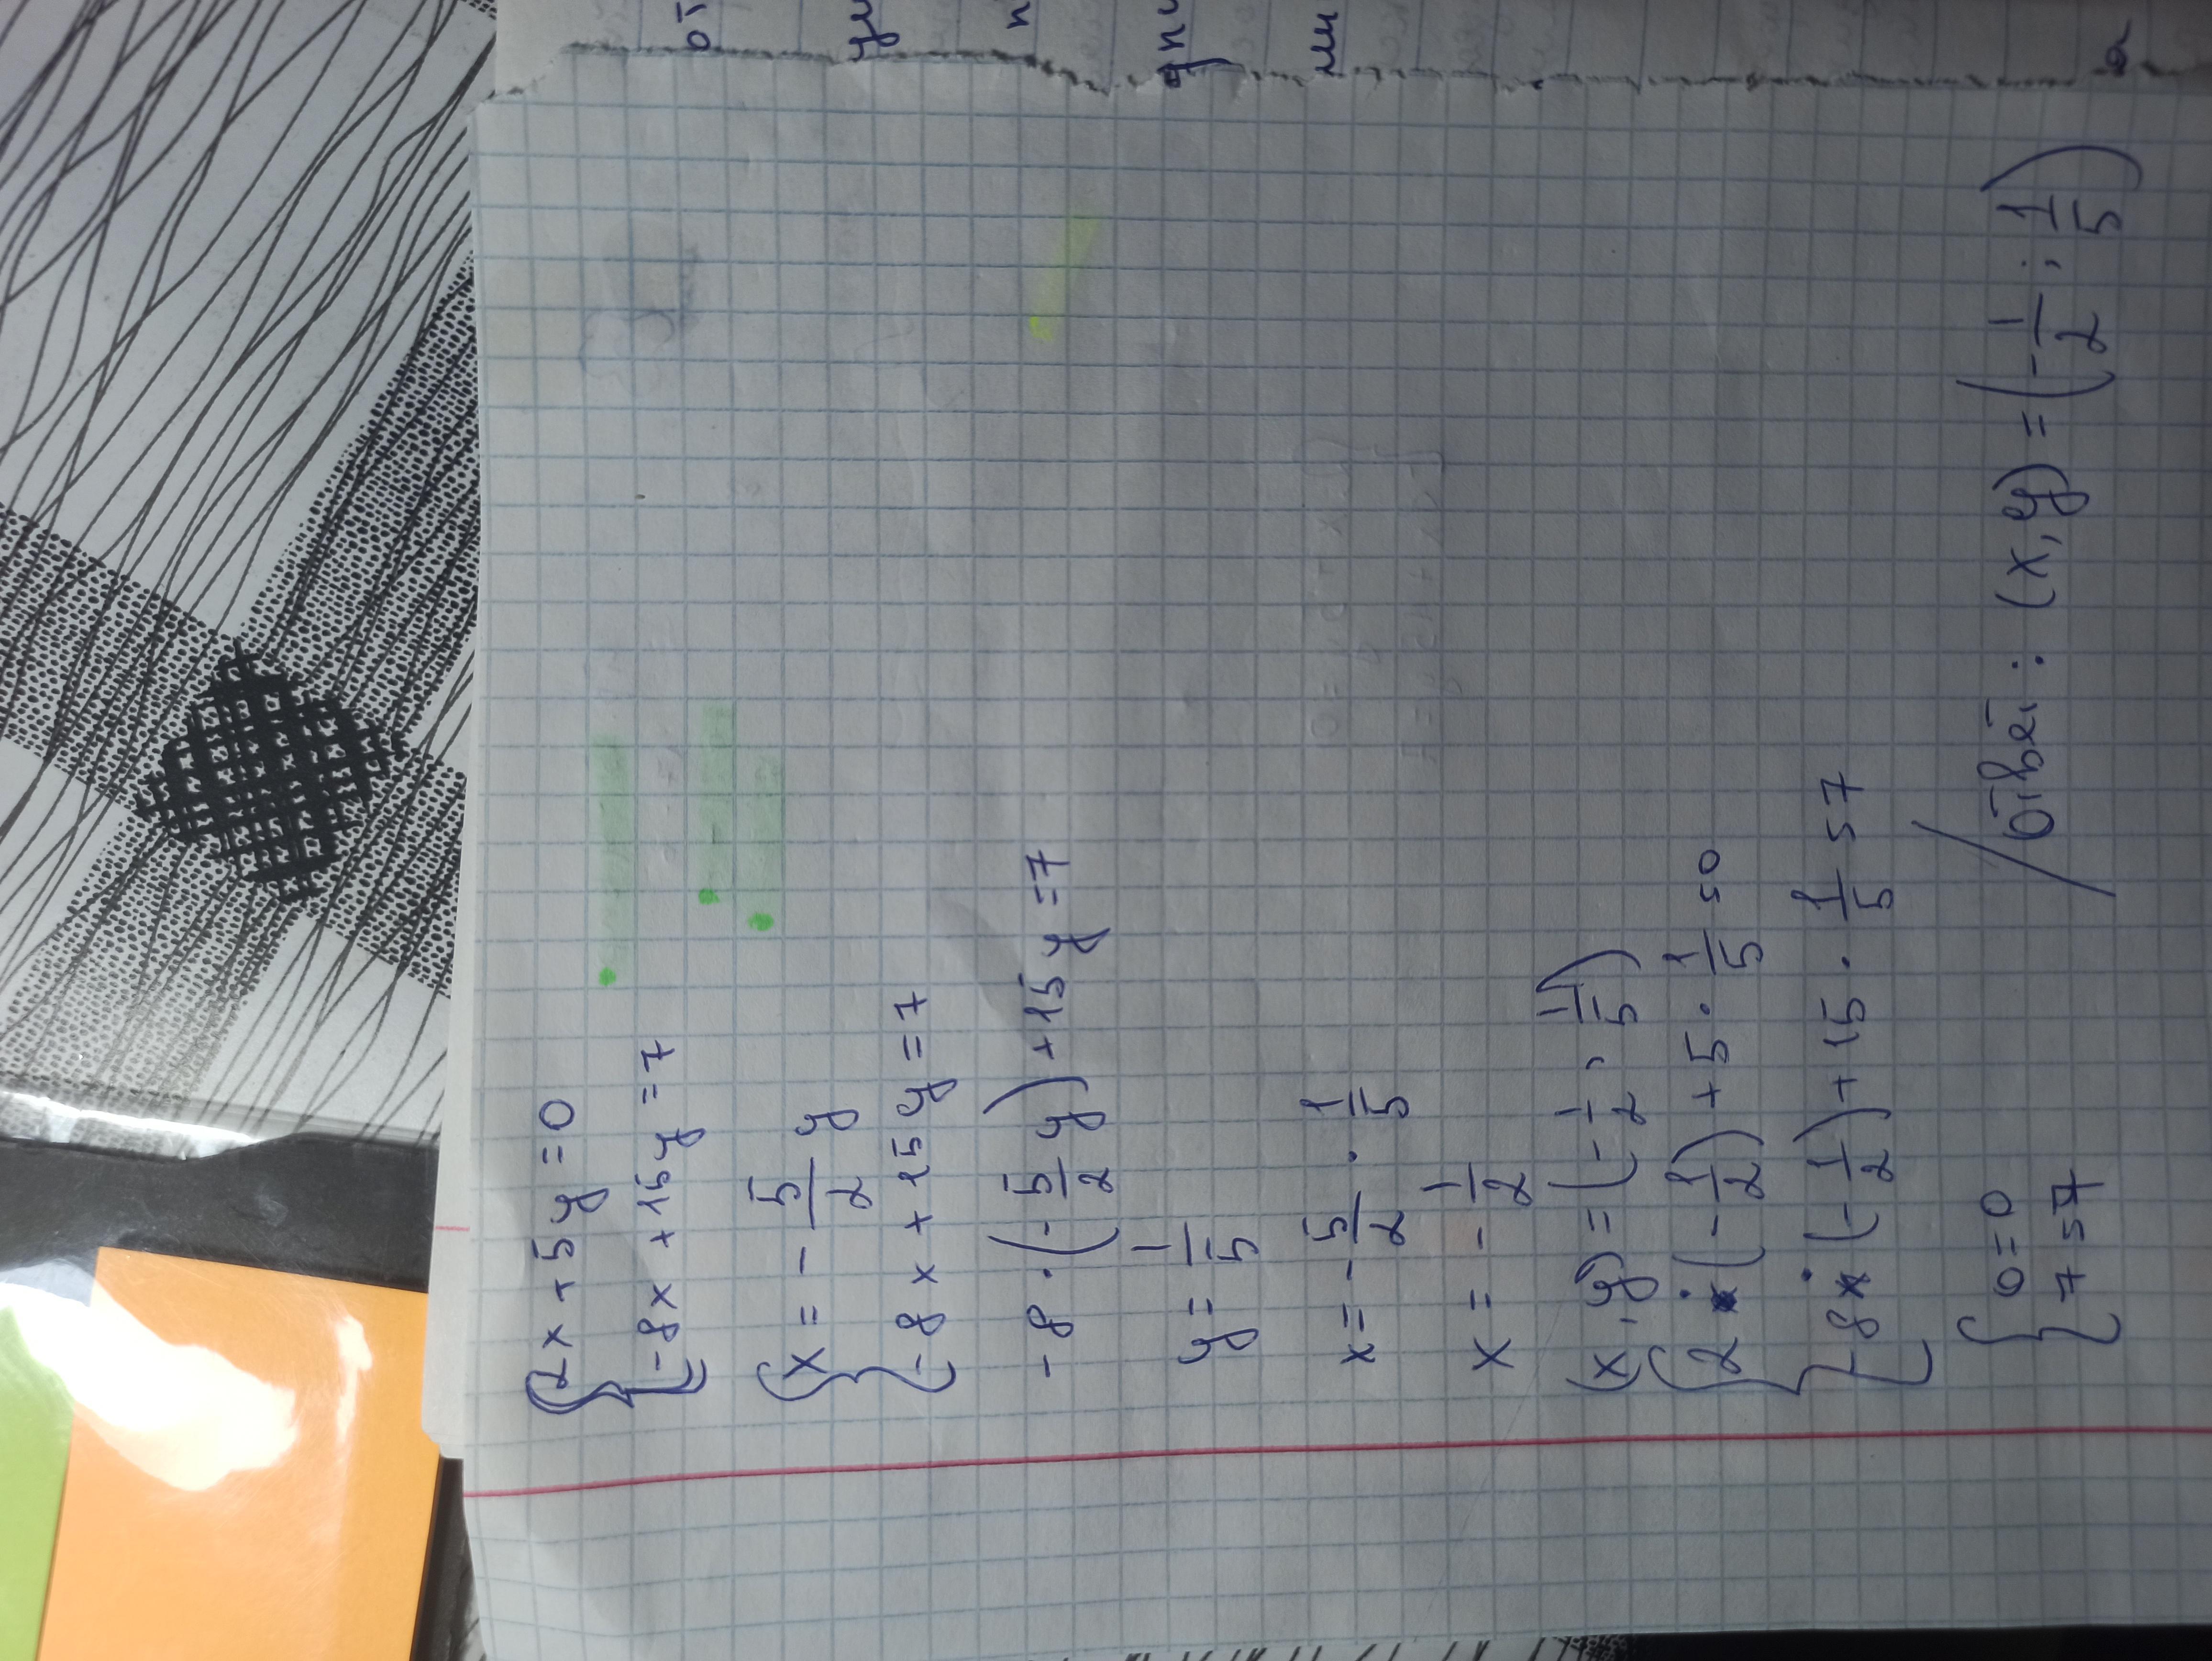 {2x+5y=0
{-8x+15y=7
{x=-5/2 y
{-8x+15y=7
-8·(-5/2 y)+15y=7
y=1/5
x=-5/2·1/5
x=-1/2
(x,y)=(-1/2;1/5)
{2·(-1/2)+5·1/5=0
{-8·(-1/2)+15·1/5=7
{0=0
{7=7
Ответ: (x,y)=(-1/2;1/5)